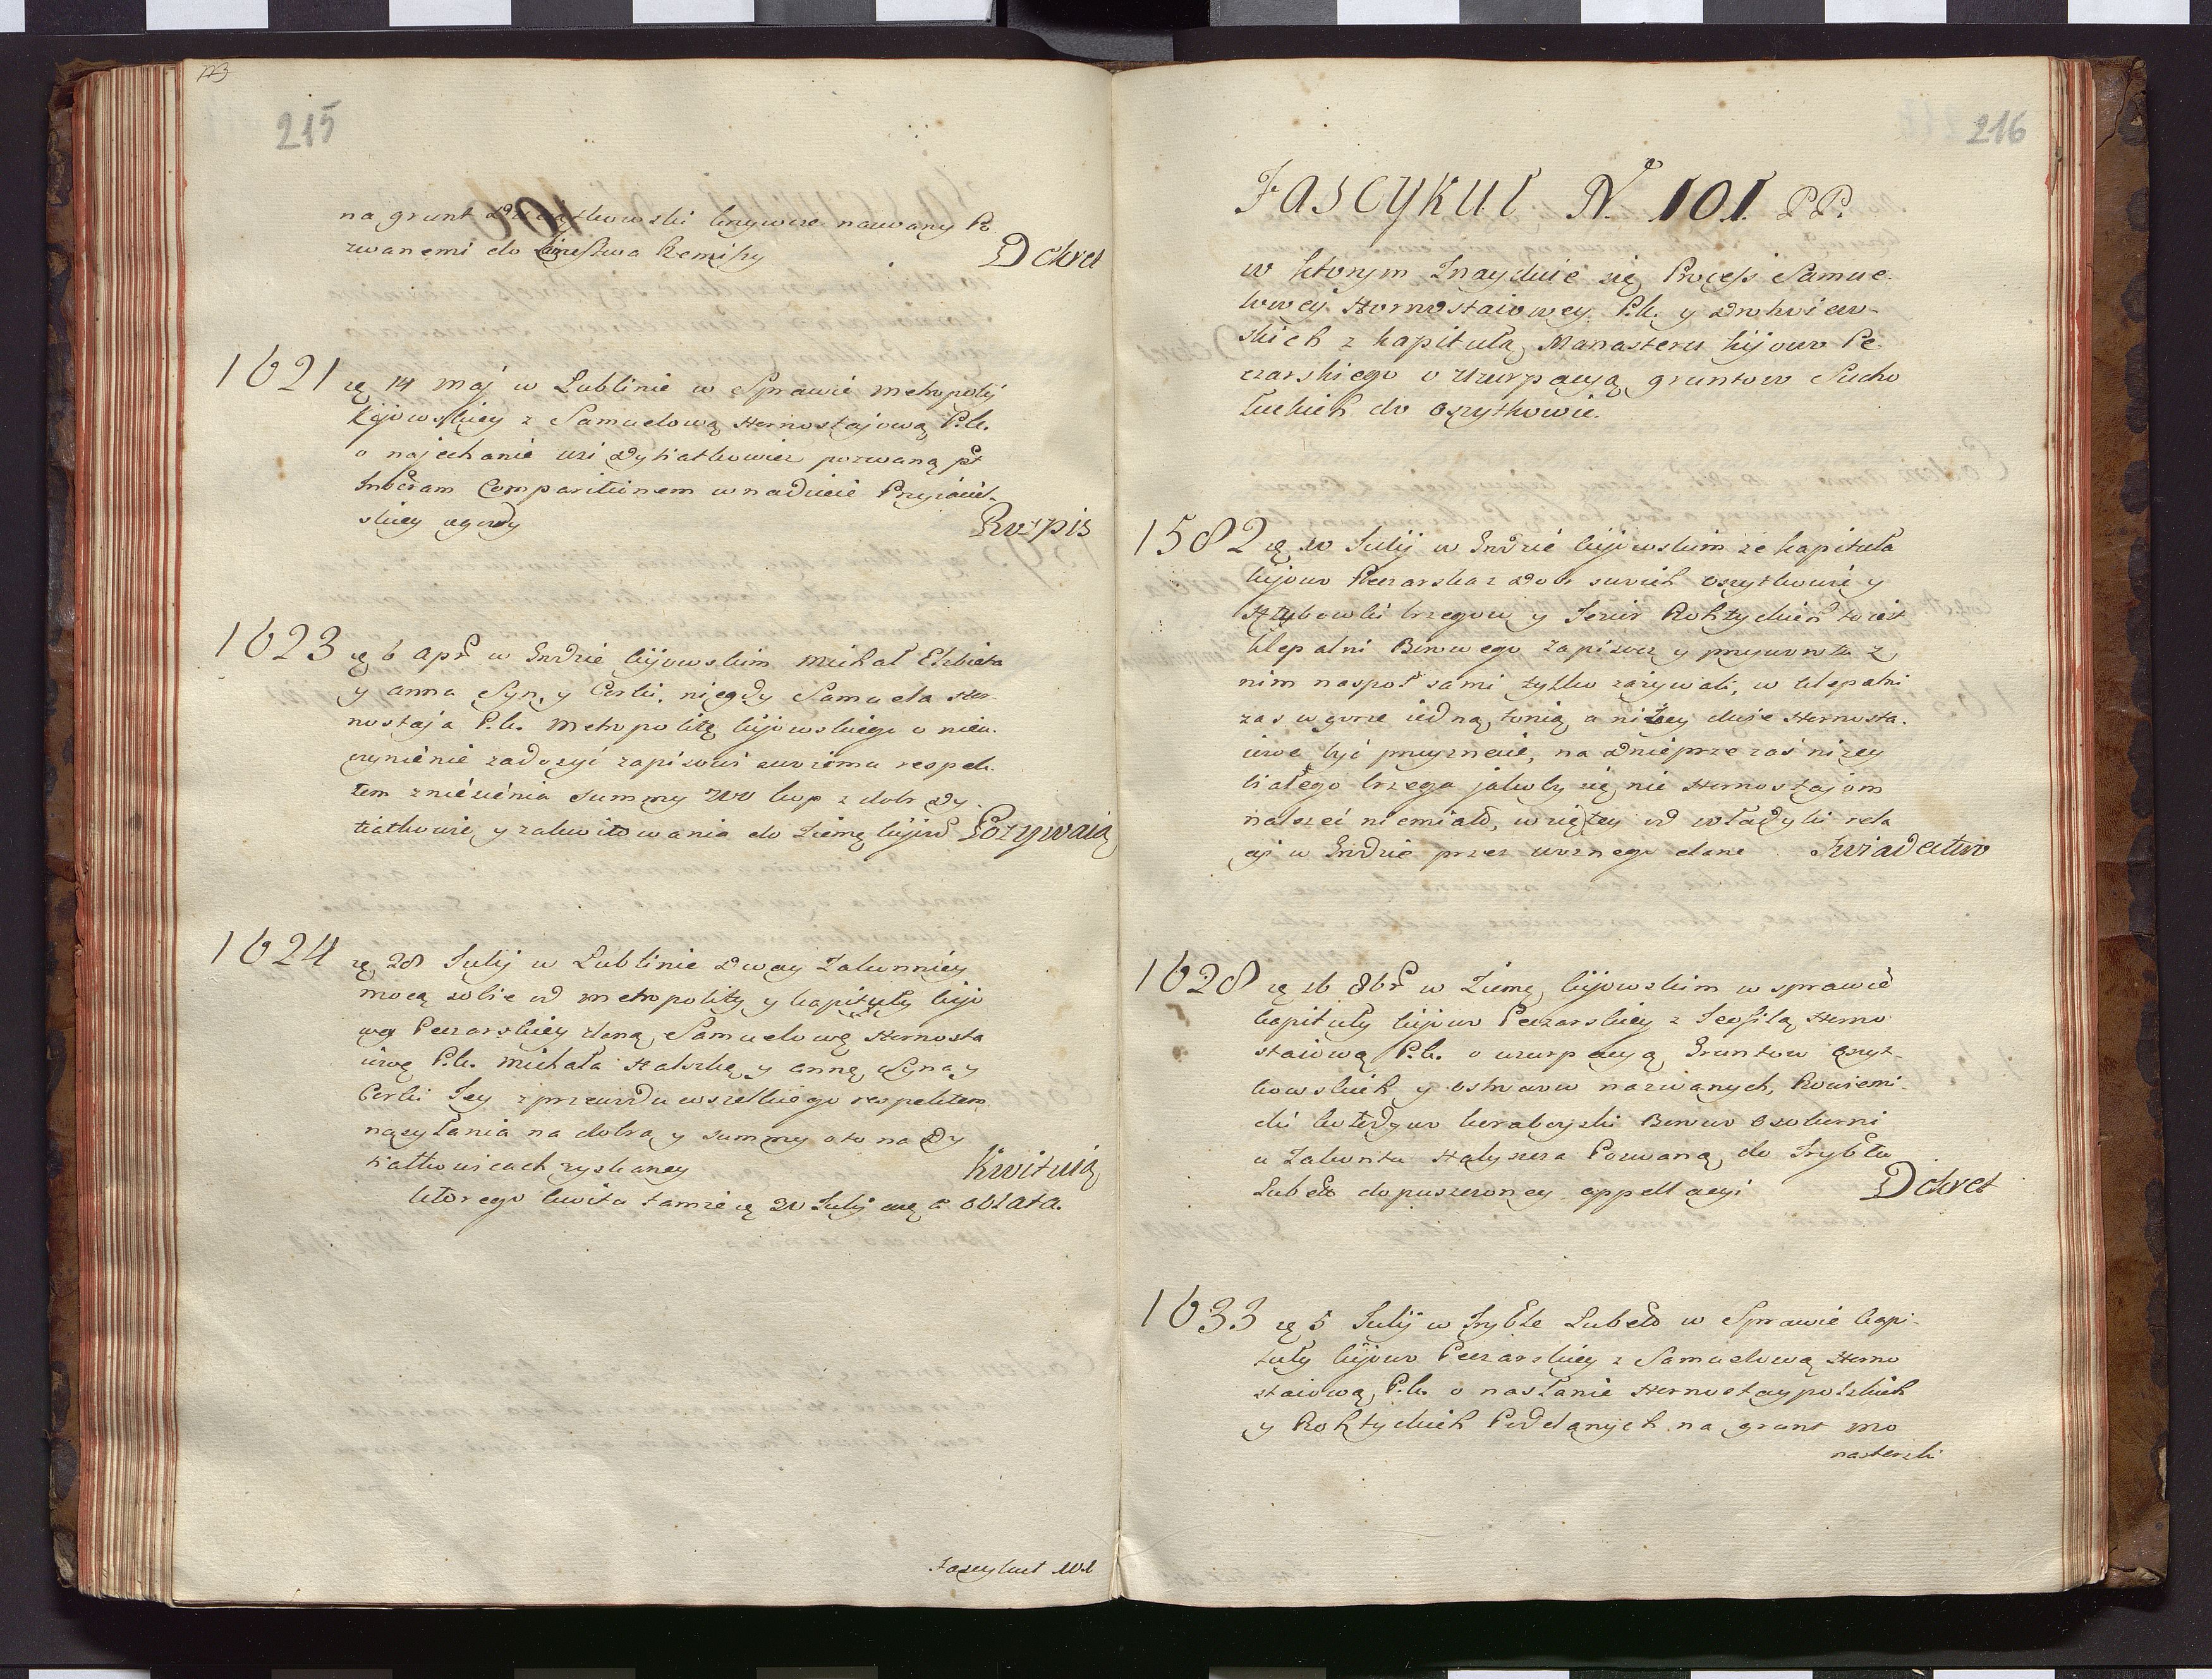 215
na grunt Dziatkowski krzywcze nazwany Po
zwanemi do Ziemstwa Remissy Dekret
1621 rę 14 Maj w Lublinie w Sprawie Metropolij
Kijowskiey z Samuelową Hornostajową P.k.
o najechanie wsi Dytiatkowicz pozwaną pt
Inberam Comparitionem w nadzieie Przyiaciel-
skiey ugody Rozpis
1623 rę 6 Apr w Grodzie kijowskim Michał Elzbieta
y Anna Syn, y Corki, niegdy Samuela Hor-
nostaja P.k. Metropolitę kijowskiego o nieu-
czynienie zadosyć zapisowi swoiemu respek-
tem zniesienia Summy 200 kop z dobr Dy-
tiatkowic y zakwitowania do Ziemę kijow Pozywaią
1624 rę 28 Julij w Lublinie Dway Zakonnicy
mocą sobie od Metropolity y kapituły kijo
wo Peczarskiey daną Samuelowę Hornosta
iowę P.k. Michała Halszkę y Annę Syna y
Corki Jey z przewodu wszelkiego respektem
nasyłania na dobra y Summy oto na Dy
tiatkowicach zyskaney Kwituią
ktorego kwitu tamże rę 30 Julij est oblata.
Fascykuł 101
216
Fascykuł N. 101. PP.
w ktorym Znayduie się Process Samue-
lowey Hornostaiowey P.k. y Drohoiew-
skich z kapitułą Manasteru kijowo Pe-
czarskiego o Uzurpacyą gruntow Sucho
łuckich do Oszytkowic.
1582 rę 10 Julij w Grodzie kijowskim ze kapituła
kijowo Peczarska z dob swoich Oszytkowic y
Hłybowki brzegow y Jezior Rohtyckich to iest
klepalni Borowego Zapisocz y przywrotu z
nim naspoł sami tylko zażywali, w klepalni
zas w gorze iedną tonią a niżey dwie Hornosta-
iowe być przyznaie, na Dnieprze zaś niżey
białego brzega jakoby się nic Hornostajom
należeć niemiało, wziętey od władyki rela
cji w Grodzie przez woznego dane Swiadectwo
1628 rę 16 8br w Ziemę kijowskim w sprawie
kapituły kijowo Peczarskiey z Teofilą Horno
staiową P.k. o uzurpacyą Gruntow Oszyt-
kowskich y ostrowow nazwanych, Rowiemi-
cki koterdyw korabiyski Borow Osokorni
u Zakrutu Hałyszcza Pozwaną do Trybłu
Lubeło dopuszczoney appellacyi Dekret
1633 rę 5 Julij w Tryble Lubeło w Sprawie kapi-
tuły kijowo Peczarskiey z Samuelową Horno
staiową P.k. o nasłanie Hornostaypolskich
y Rohtyckich Poddanych na grunt mo
nasterski